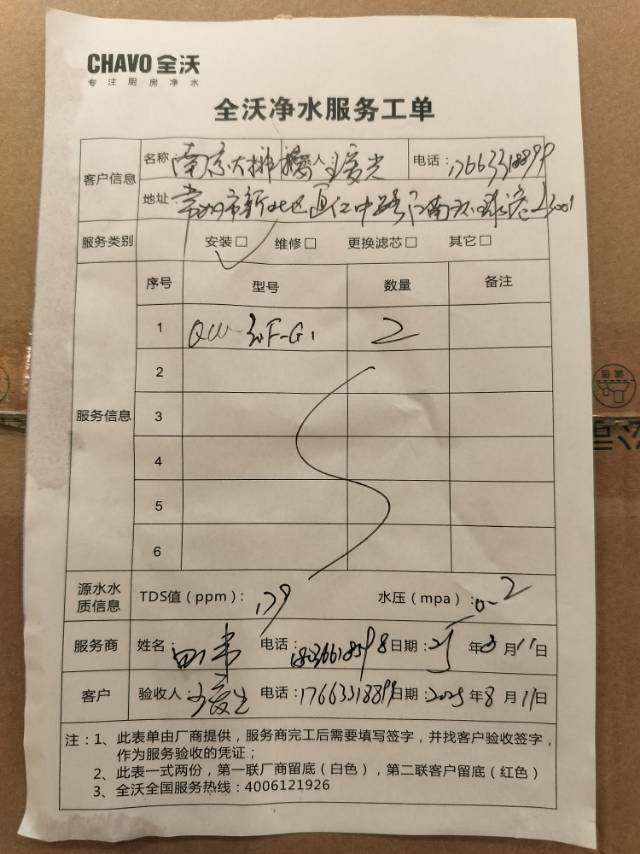 CHAVO 全沃
专注厨房净水
全沃净水服务工单
客户信息
名称 南京大排档 人 电话：17663318899
地址 常州市新北区 中路 南 环球港 3001
服务类别 安装□ 维修□ 更换滤芯□ 其它□
服务信息
序号 型号 数量 备注
1 2
2
3
4
5
6
源水水质信息 TDS值（ppm）：179 水压（mpa）：0-2
服务商 姓名： 电话： 日期：25年8月11日
客户 验收人： 电话：17663318899 日期：2025年8月11日
注：1、此表单由厂商提供，服务商完工后需要填写签字，并找客户验收签字，
作为服务验收的凭证；
2、此表一式两份，第一联厂商留底（白色），第二联客户留底（红色）
3、全沃全国服务热线：4006121926